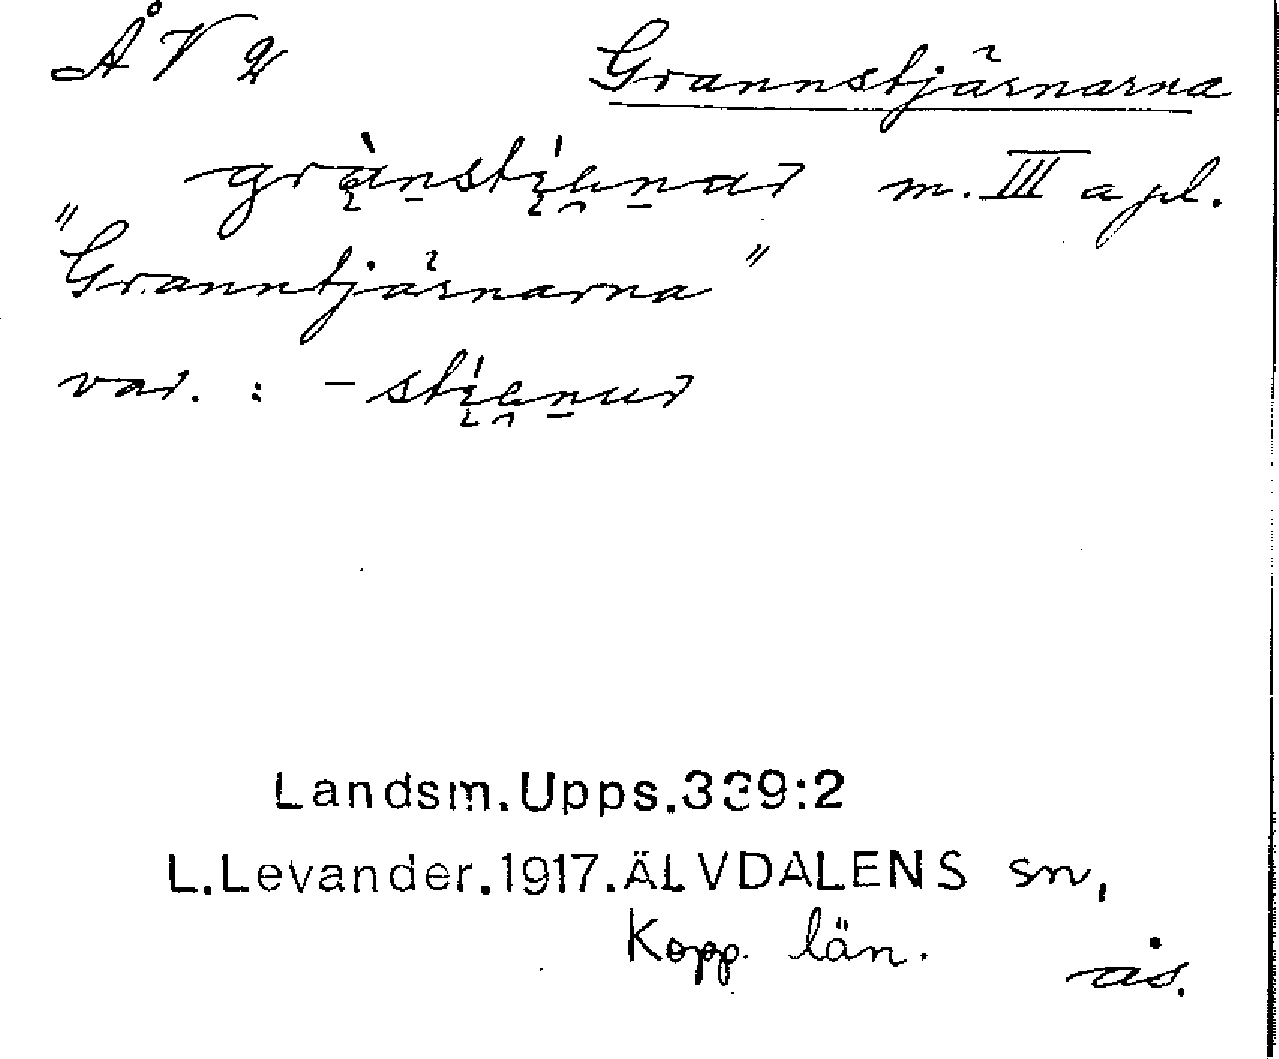 ÅV 2 Grannstjärnarna
grànsti̯ę́ṇar m. III a pl.
"Granntjärnarna"
var. : -sti̯ę́ṇur
Landsm.Upps.339:2
L.Levander.1917.ÄLVDALENS sn,
Kopp. län. ås.